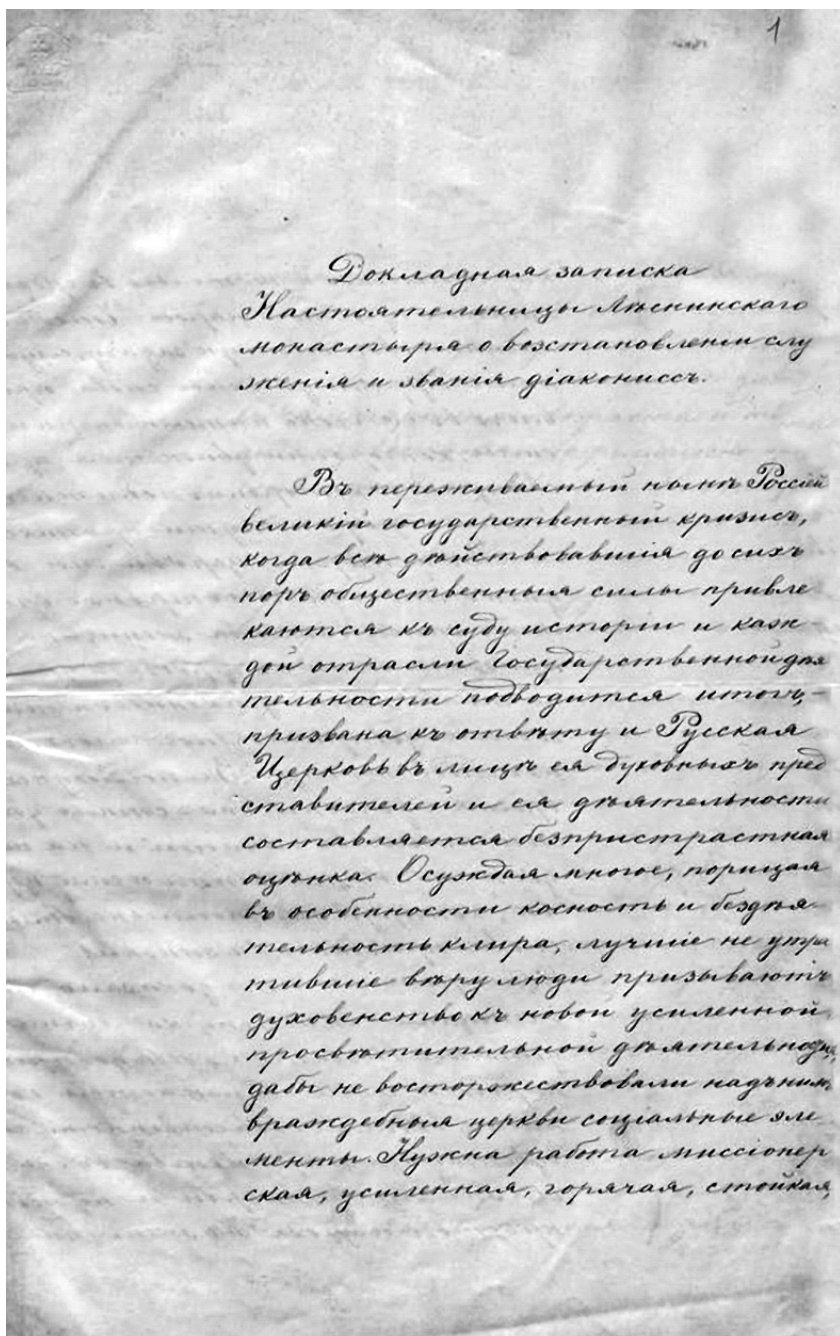 1
Докладная записка
Настоятельницы Лѣснинскаго
монастыря о возстановленіи слу
женія и званія діакониссъ.
Въ переживаемый нынѣ Россіей
великій государственный кризисъ,
когда всѣ дѣйствовавшія до сихъ
поръ общественныя силы привле
каются къ суду исторіи и каж-
дой отрасли государственной дѣя
тельности подводится итогъ,-
призвана къ отвѣту и Русская
Церковь въ лицѣ ея духовныхъ пред
ставителей и ея дѣятельности
составляется безпристрастная
оцѣнка. Осуждая многое, порицая
въ особенности косность и бездѣя-
тельность клира, лучшіе не утра
тившіе вѣру люди призываютъ
духовенство къ новой усиленной,
просвѣтительной дѣятельности,
дабы не восторжествовали надъ нимъ
враждебныя церкви соціальные эле-
менты. Нужна работа миссіонер
ская, усиленная, горячая, стойкая,